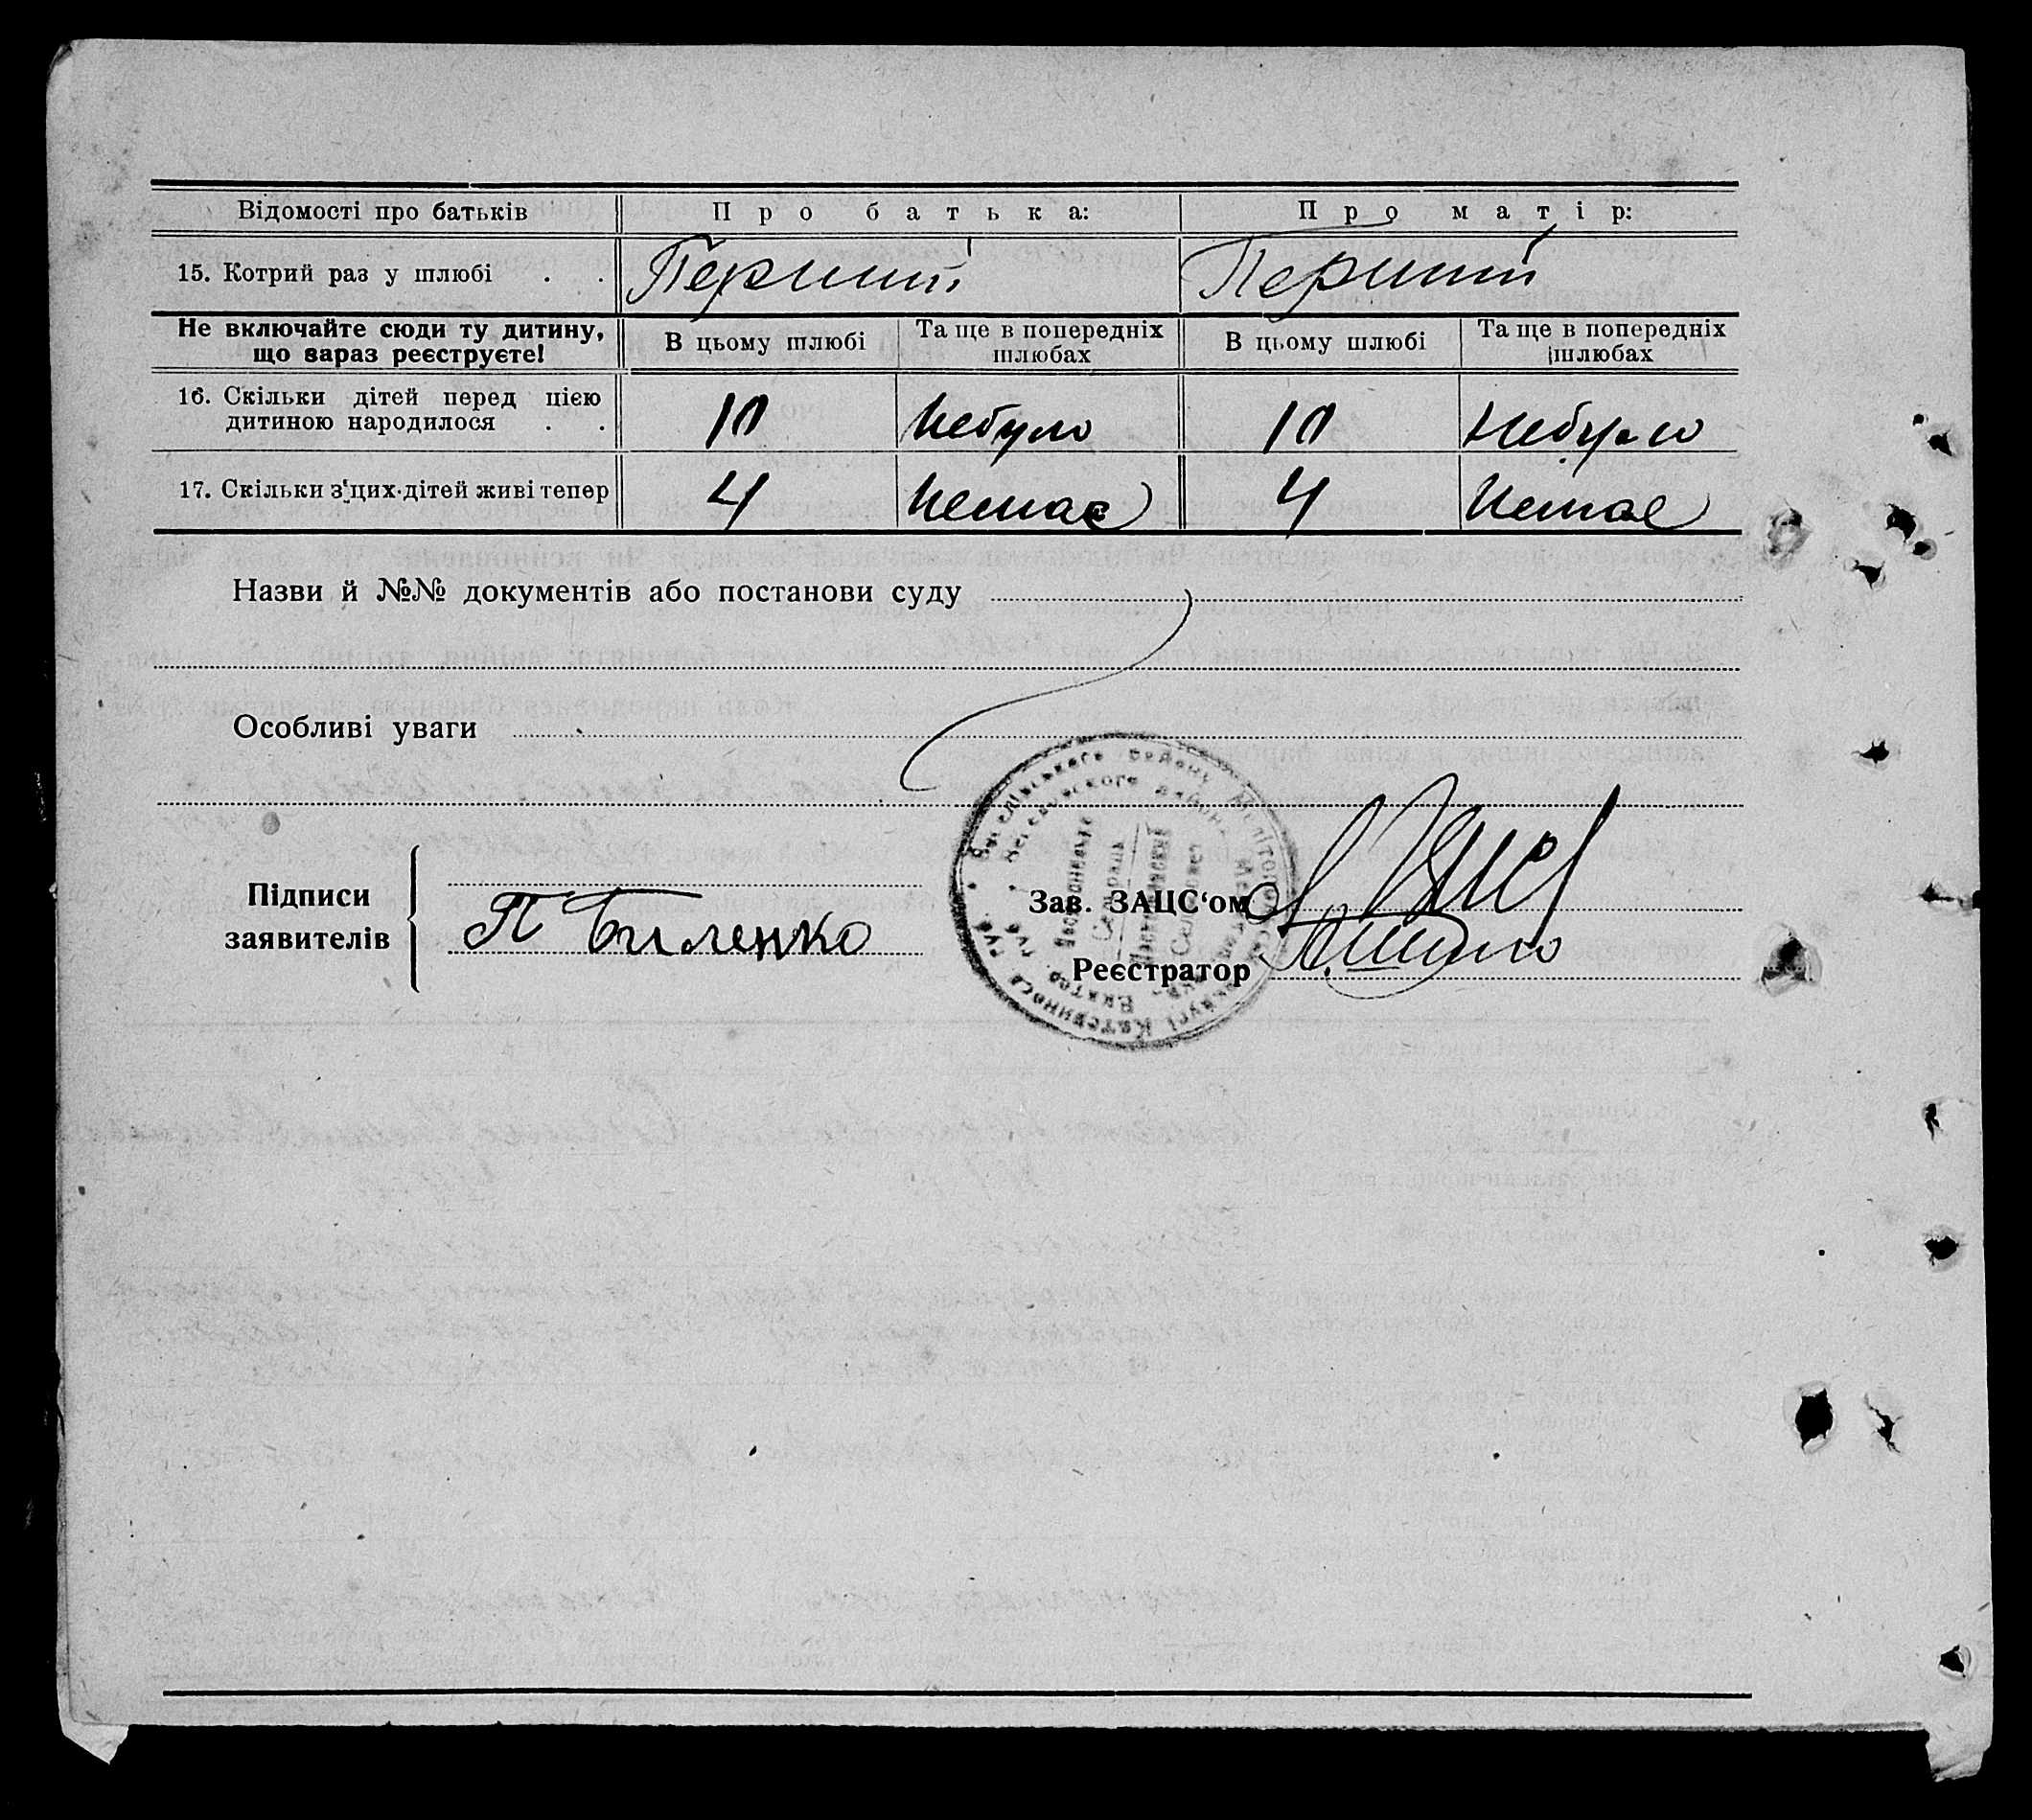 Відомості про батьків Про батька: Про матір:
15. Котрий раз у шлюбі . . Перший Перший
Не включайте сюди ту дитину, що зараз реєструєте! В цьому шлюбі Та ще в попередніх шлюбах В цьому шлюбі Та ще в попередніх шлюбах
16. Скільки дітей перед цією
дитиною народилося . . 10 Небуло 10 Небуло
17. Скільки з цих дітей живі тепер 4 Немає 4 Немає
Назви й №№ документів або постанови суду
Особливі уваги
Підписи
заявителів
П Биленко
Зав. ЗАЦС‘ом
Реєстратор